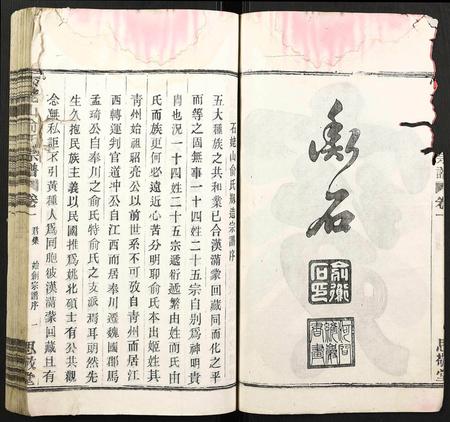 石
宗譜 卷一
思敬堂
石池山俞氏創造宗譜序
五大種族之共和業已合漢滿蒙回藏同而化之平
而等之固無事一十四姓二十五宗自別為神明貴
冑也況一十四姓二十五宗遞衍遞繁由姓而氏由
氏而族更何必遠近心苦分明聊俞氏本出姬姓其
青州始祖紹亮公以前世系不可攷自青州而居江
西轉運判官道冲公自江西而居奉川遷魏國郡馬
孟琦公自奉川之俞氏特俞氏之支派焉耳朗然先
生久抱民族主義以民國推為姚北碩士有公共觀
念無私詎不引黃種人為同胞彼漢滿蒙回藏且有
宗譜 卷一
始創宗譜序
思敬堂